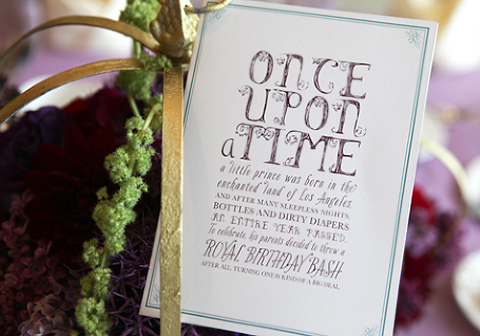 ONCE
UPON
a TIME
a little prince was born in the
enchanted land of Los Angeles.
AND AFTER MANY SLEEPLESS NIGHTS,
BOTTLES AND DIRTY DIAPERS
AN ENTIRE YEAR PASSED.
To celebrate, his parents decided to throw a
ROYAL BIRTHDAY BASH
AFTER ALL, TURNING ONE IS KIND OF A BIG DEAL.